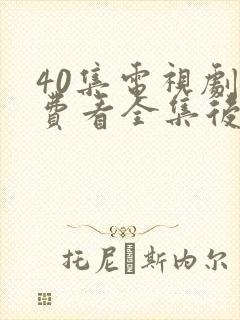 40集電視劇
費看全集後
托尼·斯内尔